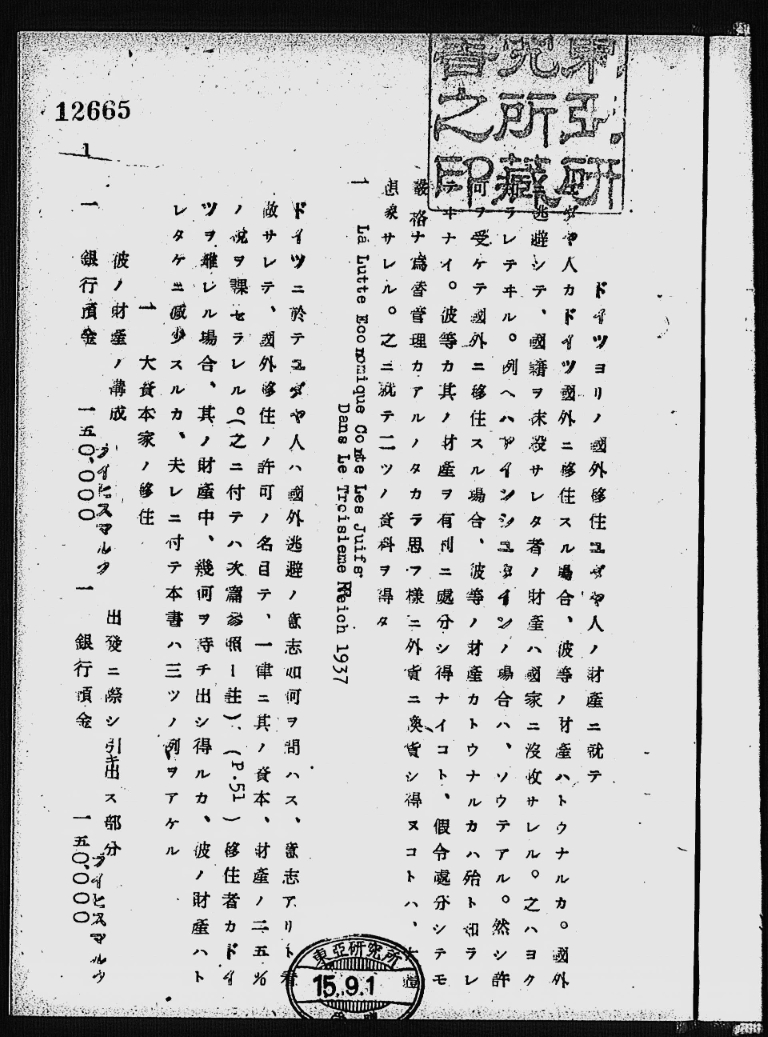 12665
1
東亞研
究所藏
書之印
ドイツヨリノ國外移住ユダヤ人ノ財產ニ就テ
ユダヤ人カドイツ國外ニ移住スル場合、彼等ノ財產ハトウナルカ。國外
逃避シテ、國籍ヲ末沒サレタ者ノ財產ハ國家ニ沒收サレル。之ハヨク
知ラレテヰル。例ヘハアインシユタインノ場合ハ、ソウテアル。然シ許
可ヲ受ケテ國外ニ移住スル場合、彼等ノ財產カトウナルカハ殆ト知ラレ
テヰナイ。彼等カ其ノ財產ヲ有利ニ處分シ得ナイコト、假令處分シテモ
嚴格ナ爲替管理カアルノタカラ思フ樣ニ外貨ニ換貨シ得ヌコトハ、
想象サレル。之ニ就テ二ツノ資料ヲ得タ
一 La Lutte Economique Conte Les Juifs
Dans Le Troisieme Reich 1937
ドイツニ於テユダヤ人ハ國外逃避ノ意志如何ヲ問ハス、意志アリト看
做サレテ、國外移住ノ許可ノ名目テ、一律ニ其ノ資本、財產ノ二五%
ノ稅ヲ課セラレル。(之ニ付テハ次篇參照ー註)、(P.51)移住者カドイ
ツヲ離レル場合、其ノ財產中、幾何ヲ持チ出シ得ルカ、彼ノ財產ハト
レタケニ減少スルカ、夫レニ付テ本書ハ三ツノ例ヲアケル
一 大資本家ノ移住
彼ノ財產ノ構成 ライヒスマルク 出發ニ際シ引キ出ス部分 ライヒスマルク
一 銀行預金 一五〇、〇〇〇 一 銀行預金 一五〇、〇〇〇
東亞研究所
15.9.1